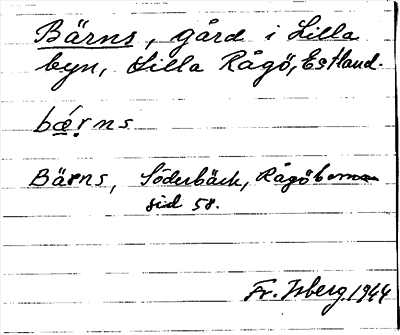 Bärns, gård i Lilla
byn, Lilla Rågö, Estland.
bǽṛns
Bärns, Söderbäck, Rågöborna
sid 58.
Fr. Isberg 1944